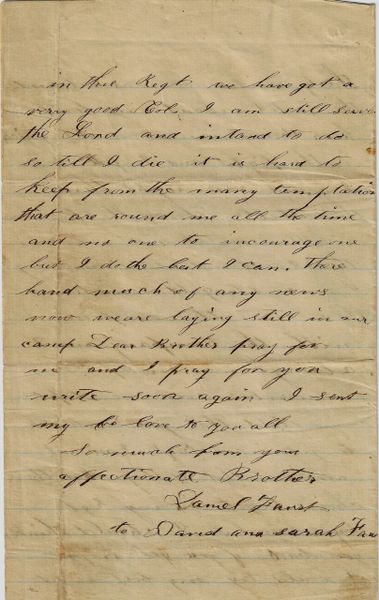 in this Regt we have got a
very good Col. I am still serve
the Lord and intand to do
so till I die it is hard to
keep from the many temptation
that are round me all the time
and no one to incourage me
but I do the best I can. There
hand much of any news
now we are laying still in our
camp Dear Brother pray for
me and I pray for you
write soon again I sent
my love to you all
So much from your
affectionate Brother
Daniel Faust
to David and Sarah Faus